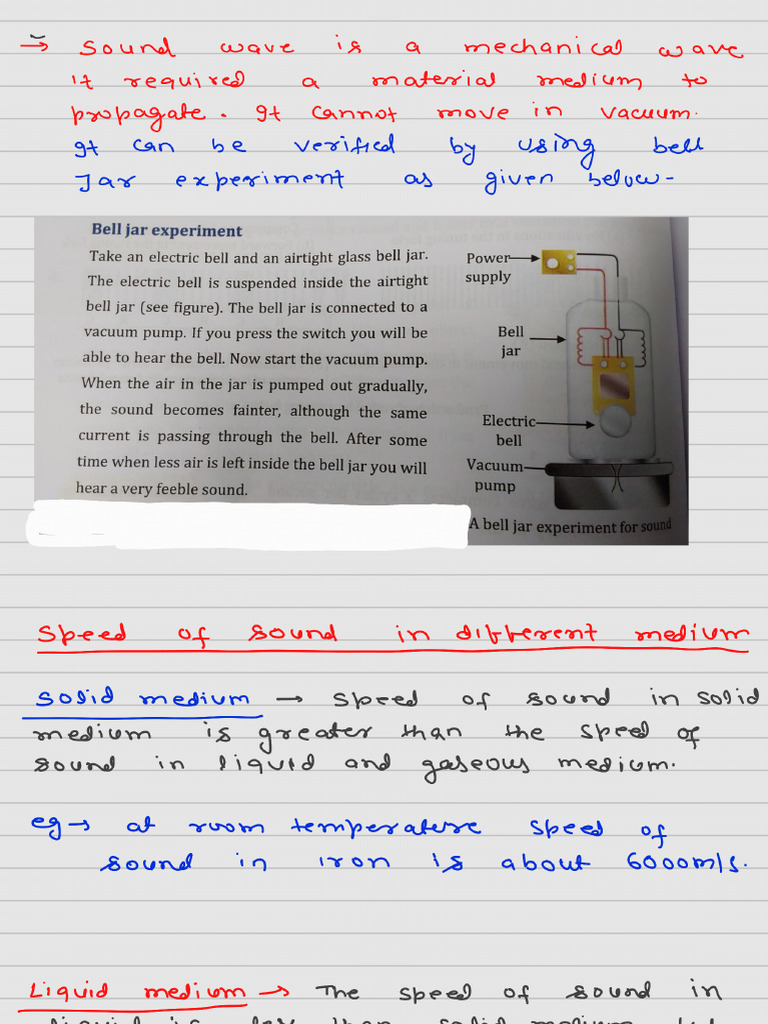 → Sound wave is a mechanical wave
it required a material medium to
propagate. It cannot move in vacuum.
It can be verified by using bell
Jar experiment as given below-
Bell jar experiment
Take an electric bell and an airtight glass bell jar.
The electric bell is suspended inside the airtight
bell jar (see figure). The bell jar is connected to a
vacuum pump. If you press the switch you will be
able to hear the bell. Now start the vacuum pump.
When the air in the jar is pumped out gradually,
the sound becomes fainter, although the same
current is passing through the bell. After some
time when less air is left inside the bell jar you will
hear a very feeble sound.
Power
supply
Bell
jar
Electric
bell
Vacuum
pump
A bell jar experiment for sound
Speed of sound in different medium
Solid medium → Speed of sound in solid
medium is greater than the speed of
sound in liquid and gaseous medium.
eg → at room temperature speed of
sound in iron is about 6000m/s.
Liquid medium → The speed of sound in
liquid is less than solid medium but